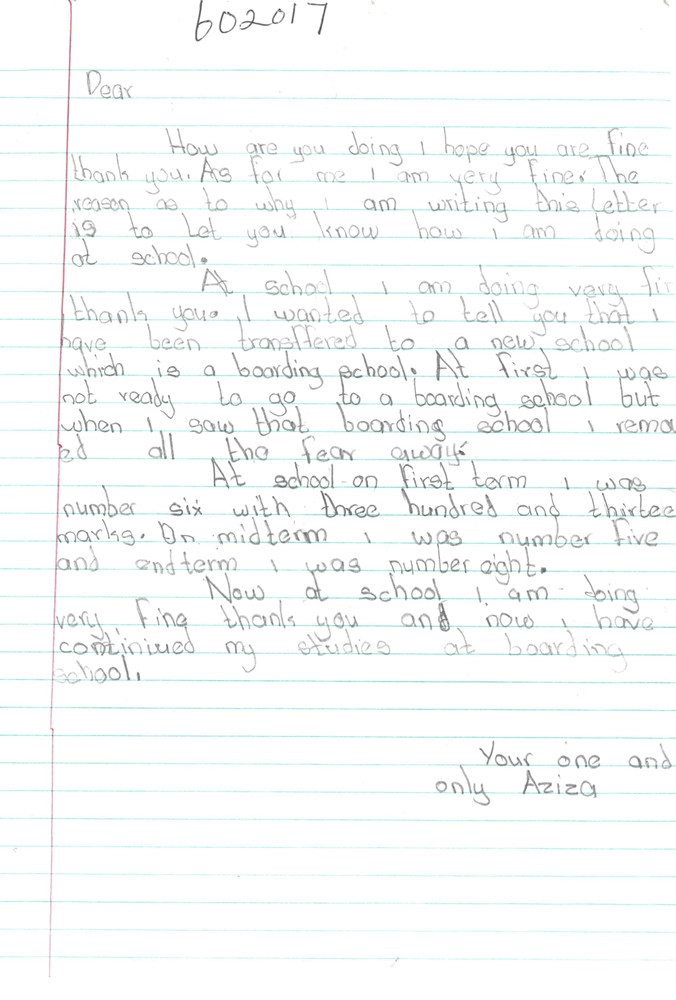 602017
Dear
How are you doing i hope you are fine
thank you. As for me i am very fine. The
reason as to why i am writing this letter
is to let you know how i am doing
at school.
At school i am doing very fin
thank you. I wanted to tell you that i
have been transffered to a new school
which is a boarding school. At first i was
not ready to go to a boarding school but
when i saw that boarding school i remo
ed all the fear away.
At school on first term i was
number six with three hundred and thirtee
marks. On midterm i was number five
and endterm i was number eight.
Now at school i am doing
very fine thank you and now i have
continiued my studies at boarding
school.
Your one and
only Aziza